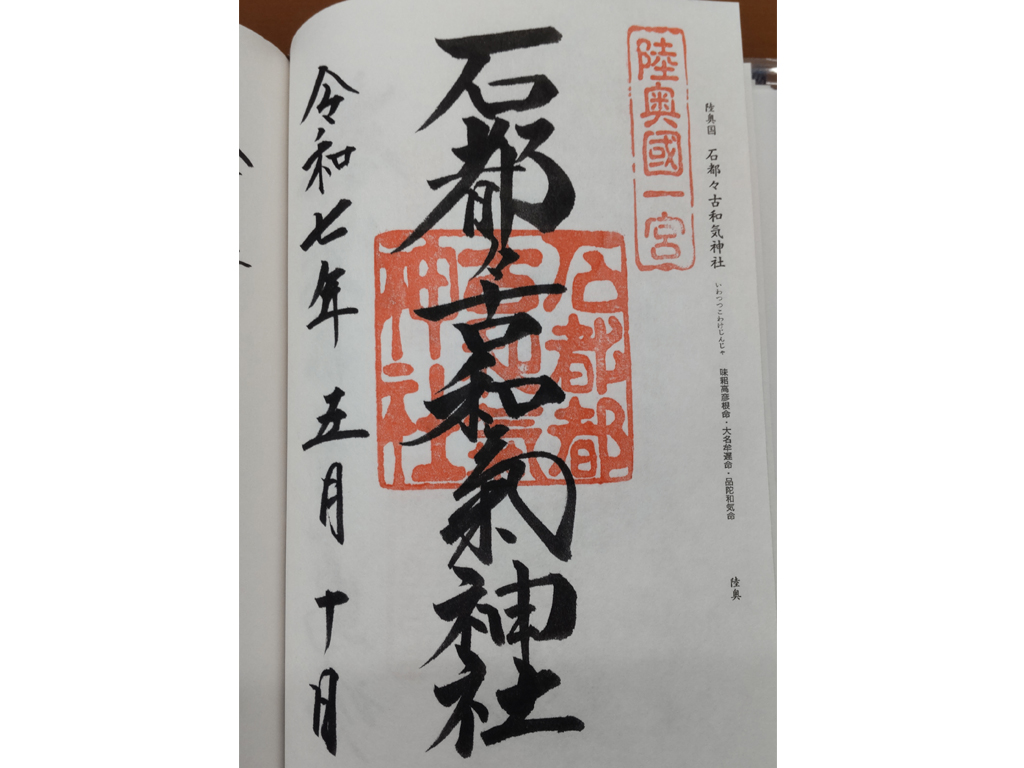 陸奥国 石都々古和気神社 いわつつこわけじんじゃ 味鉏高彦根命・大名牟遅命・品陀和気命 陸奥
陸奥國一宮
石都々古和氣神社
石都都
古和氣
神社
令和七年 五月 十月